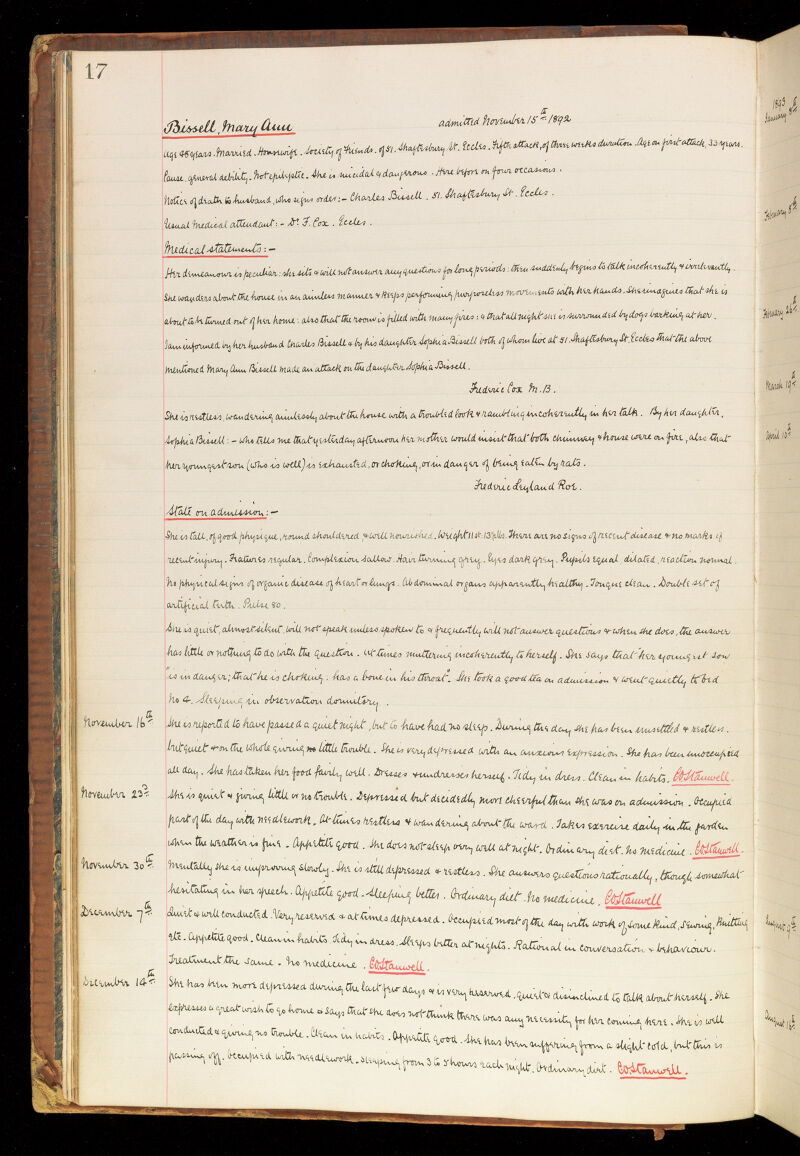 17
Bissell, Mary Ann admitted November 15th 1892
Age 48 years. Married. Housewife. Society of Friends. of 51. Shaftesbury St. Eccles. Fifth attack, of three weeks duration. Age on first attack, 33 years.
Cause, general debility. Not epileptic. She is suicidal & dangerous. Here before on four occasions.
Notices of death to husband, who signs order:- Charles Bissell. 51. Shaftesbury St. Eccles.
Usual medical attendant:- Dr. F. Cox. Eccles.
Medical statements:-
Her demeanour is peculiar: she sits & will not answer any questions for long periods: then suddenly begins to talk incoherently & irrelevantly.
She wanders about the house in an aimless manner & keeps performing purposeless movements with her hands. She imagines that she is
about to be turned out of her home: also that the room is filled with many fires: & that all night she is surrounded by dogs barking at her.
I am informed by her husband Charles Bissell & by his daughter Sophia Bissell both of whom live at 51 Shaftesbury St. Eccles that the above
mentioned Mary Ann Bissell made an attack on the daughter Sophia Bissell.
Frederic Cox M.B.
She is restless, wandering aimlessly about the house with a troubled look & rambling incoherently in her talk. By her daughter,
Sophia Bissell:- who tells me that yesterday afternoon her mother would insist that both chimney & house were on fire, also that
her youngest son (who is well) is exhausted, or choking, or in danger of being eaten by rats.
Frederic Leyland Roe.
State on admission:-
She is tall, of good physique, round shouldered & well nourished. Weight 11st. 13½lbs. There are no signs of recent disease & no marks of
recent injury. Features regular. Complexion sallow. Hair turning grey. Eyes dark grey. Pupils equal dilated, reaction normal.
No physical signs of organic disease of heart or lungs. Abdominal organs apparently healthy. Tongue clean. Double set of
artificial teeth. Pulse 80.
She is quiet, almost silent, will not speak unless spoken to & frequently will not answer questions & when she does, the answer
has little or nothing to do with the question. At times muttering incoherently to herself. She says that "her youngest son
"is in danger; that he is choking: has a bone in his throat". She took a good tea on admission & went quietly to bed
No 4. Sleeping in observation dormitory.
November 16th She is reported to have passed a quiet night, but to have had no sleep. During the day she has been unsettled & restless.
but quiet & on the whole giving little trouble. She is very depressed with an anxious expression. She has been unoccupied
all day. She has taken her food fairly well. Dresses & undresses herself. Tidy in dress. Clean in habits. COStanwell.
November 23rd She is quiet & giving little or no trouble. Depressed but decidedly more cheerful than she was on admission. Occupied
part of the day with needlework. At times restless & wandering about the ward. Takes exercise daily in the garden
when the weather is fine. Appetite good. She does not sleep very well at night. Ordinary diet. No medicine. COStanwell.
November 30th Mentally she is improving slowly. She is still depressed & restless. She answers questions rationally, though somewhat
hesitating in her speech. Appetite good. Sleeping better. Ordinary diet. No medicine. COStanwell
December 7th Quiet & well conducted. Very reserved & at times depressed. Occupied most of the day with work of some kind, Sewing, Knitting
etc. Appetite good. Clean in habits Tidy in dress. Sleeps better at nights. Rational in conversation & behaviour.
Treatment the same. No medicine. COStanwell.
December 14th She has been more depressed during the last few days & is very reserved, quiet & disinclined to talk about herself. She
expresses a great wish to go home & says that she does not think there was any necessity for her coming here. She is well
conducted & giving no trouble. Clean in habits. Appetite good. She has been suffering from a slight cold, but this is
passing off. Occupied with needlework. Sleeping from 3 to 5 hours each night. Ordinary diet. COStanwell.
1893
January 8th
February 8th
March 19th
April 16th
August 9th
August 16th